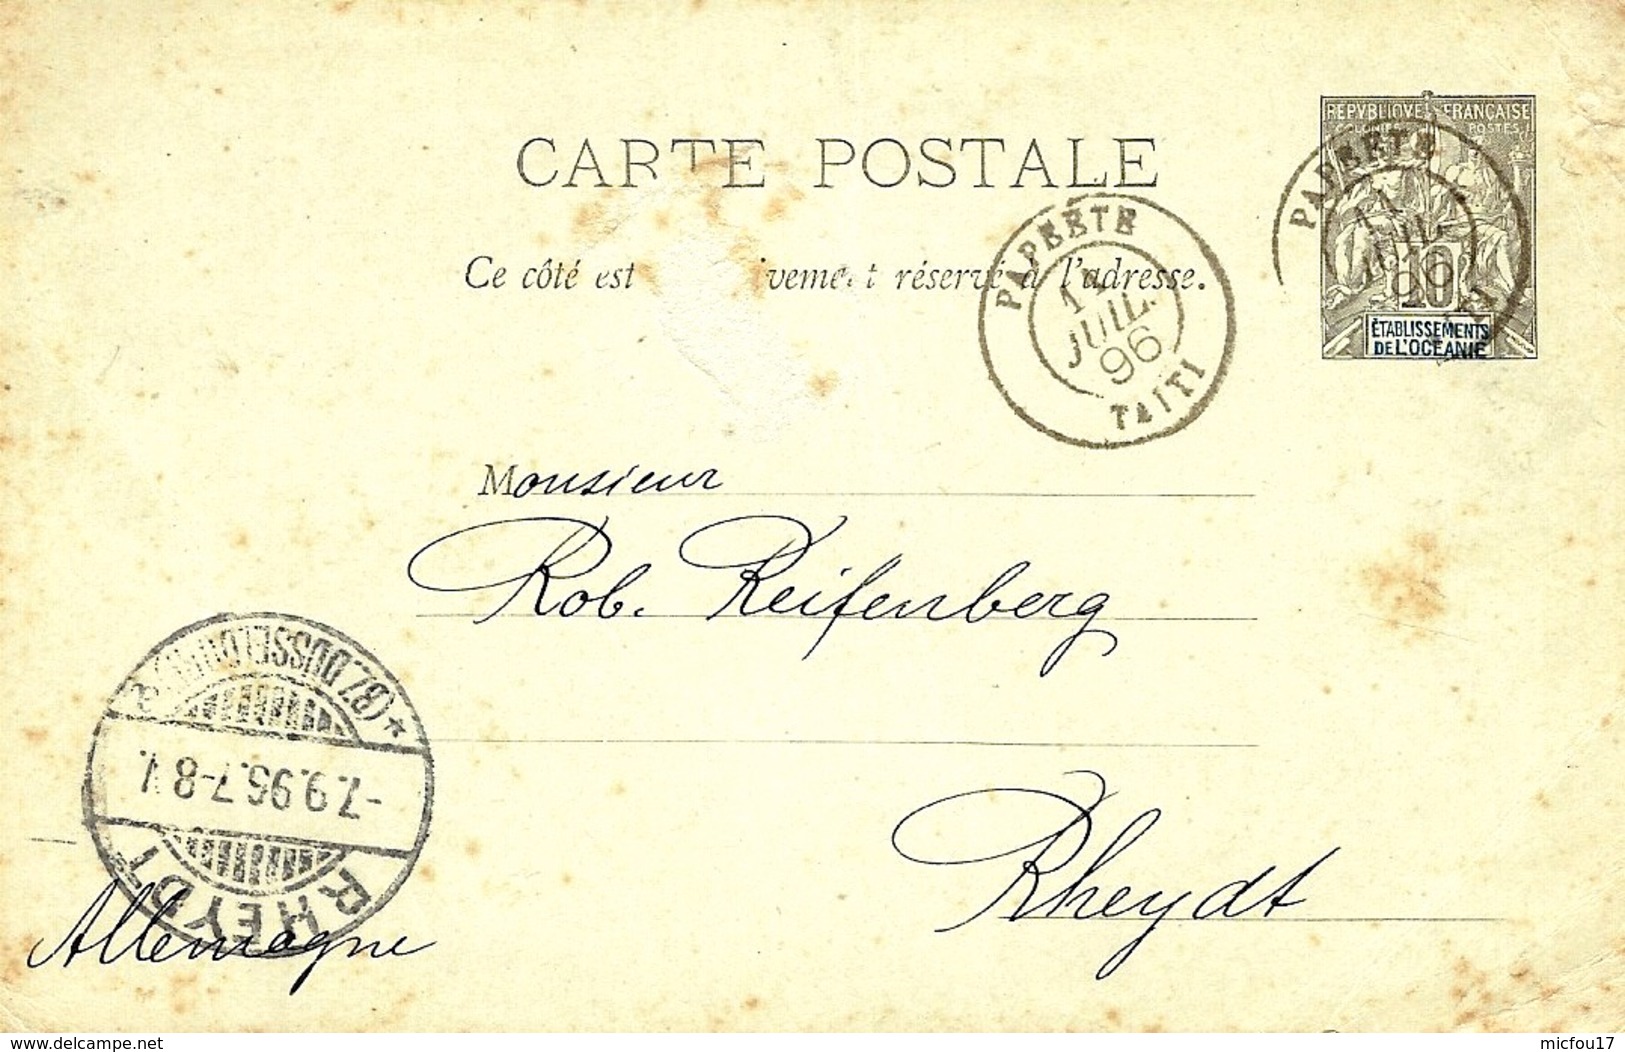 REPVBLIQVE FRANÇAISE
COLONIES POSTES
10
ÉTABLISSEMENTS
DE L'OCÉANIE
CARTE POSTALE
PAPEETE
JUIL.
96
TAITI
PAPEETE
Ce côté est ivement réservé à l'adresse.
Monsieur
Rob. Reifenberg
Rheydt
Allemagne
* (BZ. DÜSSELDORF) a
-7.9.96.7-8 V.
RHEYDT
delcampe.net
micfou17